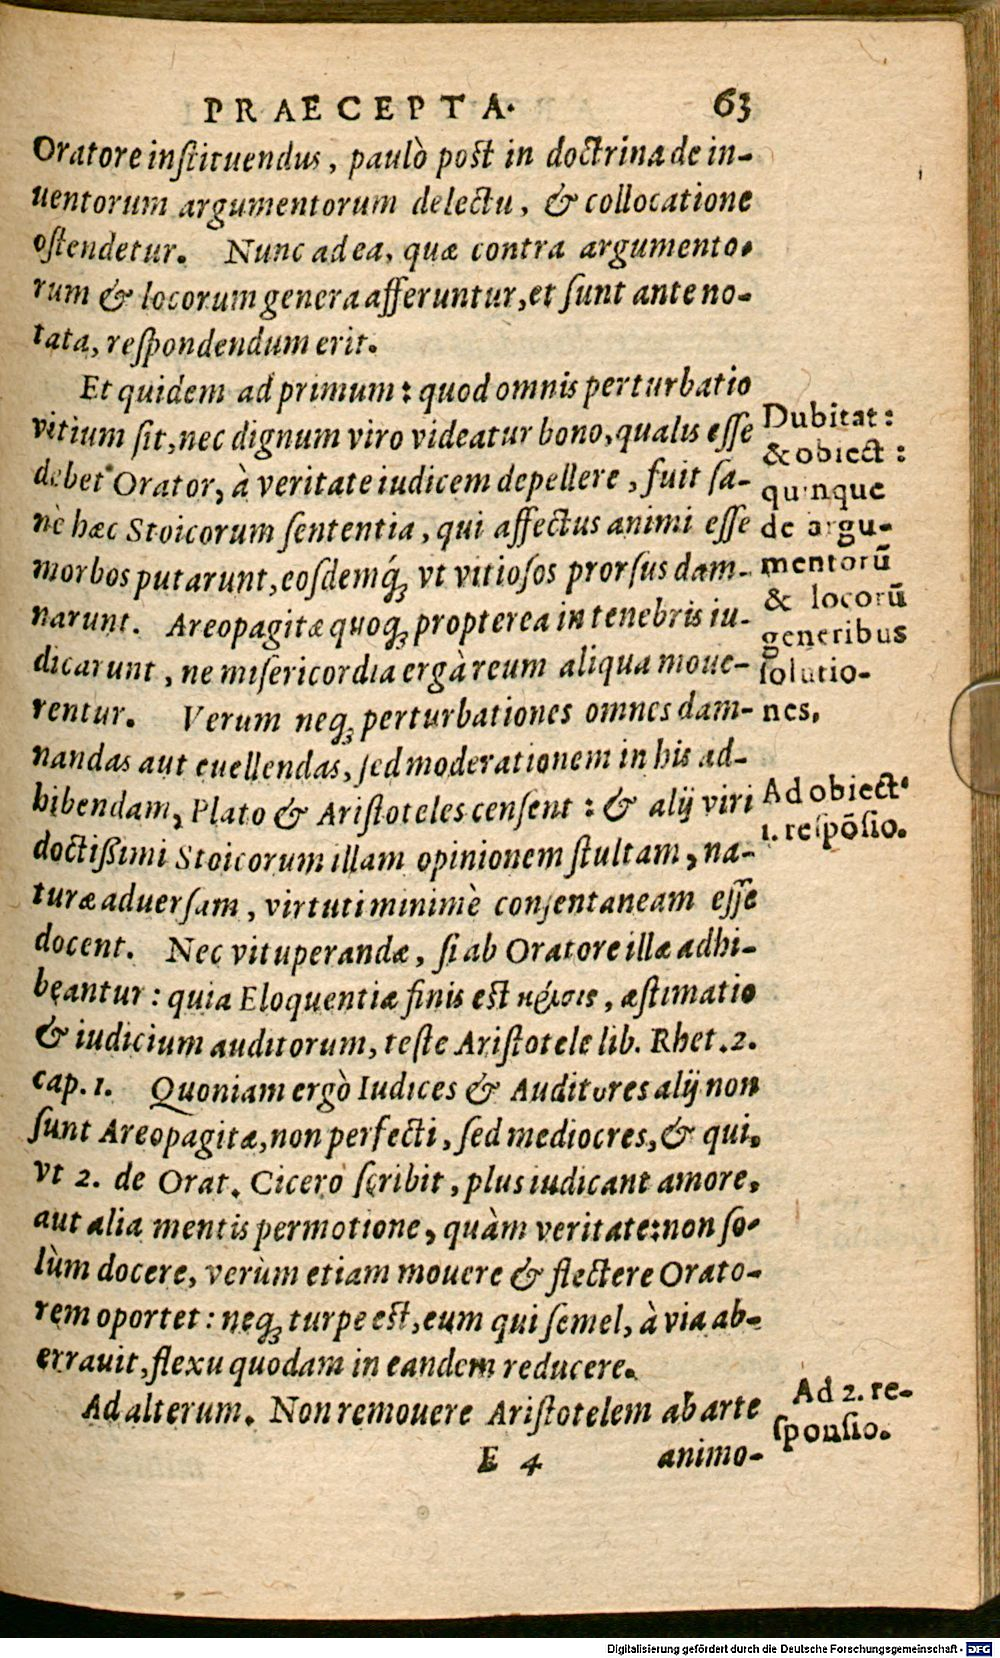 PRAECEPTA. 63
Oratore inſtituendus, paulò poſt in doctrina de in-
uentorum argumentorum delectu, & collocatione
oſtendetur. Nunc ad ea, quæ contra argumento-
rum & locorum genera afferuntur, et ſunt ante no-
tata, reſpondendum erit.
Et quidem ad primum: quod omnis perturbatio
vitium ſit, nec dignum viro videatur bono, qualis eſſe
debet Orator, à veritate iudicem depellere, fuit ſa-
nè hæc Stoicorum ſententia, qui affectus animi eſſe
morbos putarunt, eoſdemq́; vt vitioſos prorſus dam-
narunt. Areopagitæ quoq; propterea in tenebris iu-
dicarunt, ne miſericordia ergà reum aliqua moue-
rentur. Verum neq; perturbationes omnes dam-
nandas aut euellendas, ſed moderationem in his ad-
hibendam, Plato & Ariſtoteles cenſent: & alij viri
doctißimi Stoicorum illam opinionem ſtultam, na-
turæ aduerſam, virtuti minimè conſentaneam eſſe
docent. Nec vituperandæ, ſi ab Oratore illæ adhi-
beantur: quia Eloquentiæ finis eſt κρίσις, æſtimatio
& iudicium auditorum, teſte Ariſtotele lib. Rhet. 2.
cap. 1. Quoniam ergò Iudices & Auditores alij non
ſunt Areopagitæ, non perfecti, ſed mediocres, & qui,
vt 2. de Orat. Cicero ſcribit, plus iudicant amore,
aut alia mentis permotione, quàm veritate: non ſo-
lùm docere, verùm etiam mouere & flectere Orato-
rem oportet: neq; turpe eſt, eum qui ſemel, à via ab-
errauit, flexu quodam in eandem reducere.
Ad alterum. Non remouere Ariſtotelem ab arte
E 4 animo-
Dubitat:
& obiect:
quinque
de argu-
mentorũ
& locorũ
generibus
ſolutio-
nes.
Ad obiect.
1. reſpõſio.
Ad 2. re-
ſponſio.
Digitalisierung gefördert durch die Deutsche Forschungsgemeinschaft - DFG